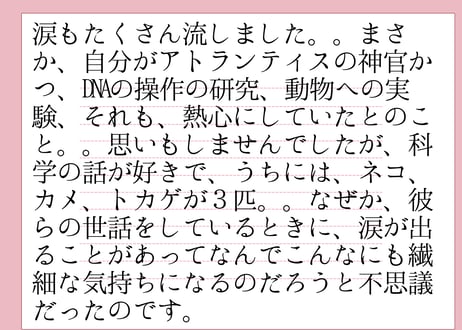 涙もたくさん流しました。。まさ
か、自分がアトランティスの神官か
つ、DNAの操作の研究、動物への実
験、それも、熱心にしていたとのこ
と。。思いもしませんでしたが、科
学の話が好きで、うちには、ネコ、
カメ、トカゲが３匹。。なぜか、彼
らの世話をしているときに、涙が出
ることがあってなんでこんなにも繊
細な気持ちになるのだろうと不思議
だったのです。